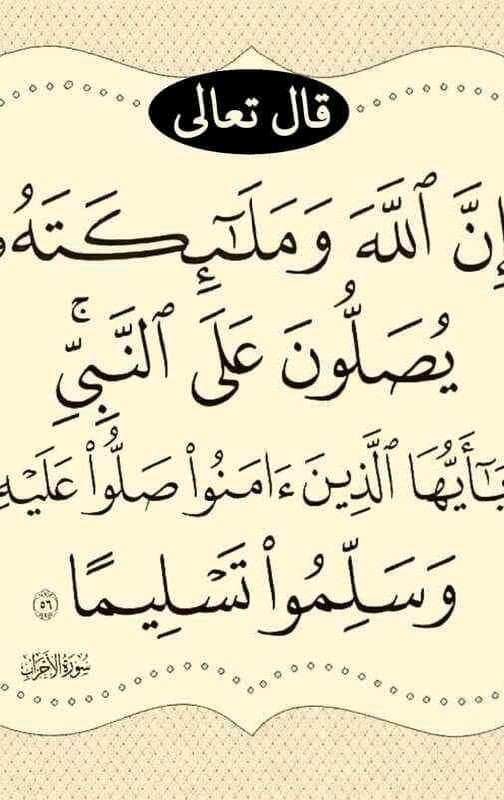 قال تعالى
إِنَّ ٱللَّهَ وَمَلَـٰٓئِكَتَهُۥ
يُصَلُّونَ عَلَى ٱلنَّبِىِّ ۚ
يَـٰٓأَيُّهَا ٱلَّذِينَ ءَامَنُوا۟ صَلُّوا۟ عَلَيْهِ
وَسَلِّمُوا۟ تَسْلِيمًا ٥٦
سُورَةُ الأَحْزَابِ